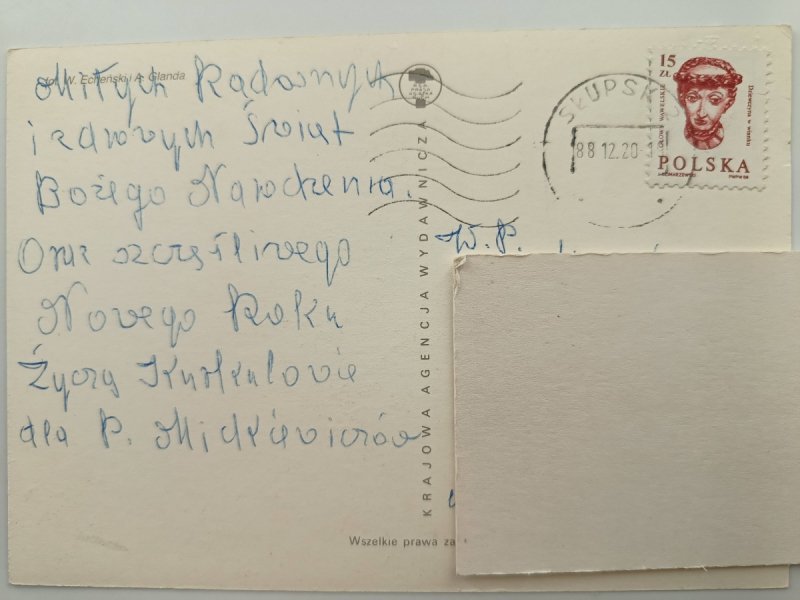 fot. W. Echeński i A. Glanda
Miłych Radosnych
i zdrowych Świąt
Bożego Narodzenia.
Oraz szczęśliwego
Nowego Roku
Życzą
dla P. Mickiewiczów
KRAJOWA AGENCJA WYDAWNICZA
Wszelkie prawa
W.P.
SŁUPSK
88.12.20
15
ZŁ
GŁOWY WAWELSKIE
Dziewczyna w wianku
POLSKA